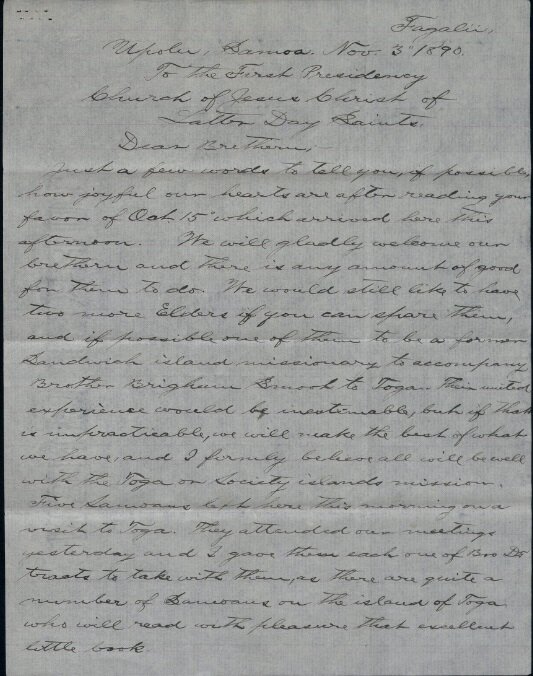 Fagalii,
Upolu, Samoa. Nov. 3" 1890.
To the First Presidency
Church of Jesus Christ of
Latter Day Saints.
Dear Brethern;-
Just a few words to tell you, if possible,
how joyful our hearts are after reading your
favor of Oct 15" which arrived here this
afternoon. We will gladly welcome our
brethern and there is any amount of good
for them to do. We would still like to have
two more Elders if you can spare them,
and if possible one of them to be a former
Sandwich island missionary to accompany
Brother Brigham Smoot to Toga. Their united
experience would be inestimable, but if that
is unpracticable, we will make the best of what
we have, and I firmly believe all will be well
with the Toga or Society islands mission.
Five Samoans left here this morning on a
visit to Toga. They attended our meetings
yesterday and I gave them each one of Bro D's
tracts to take with them, as there are quite a
number of Samoans on the island of Toga
who will read with pleasure that excellent
little book